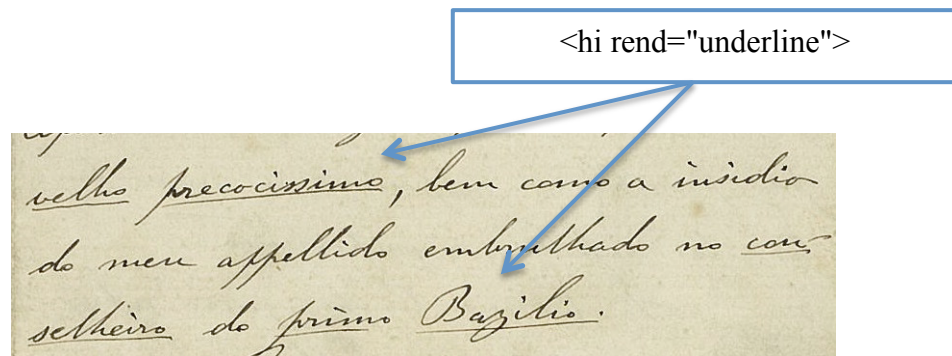 <hi rend="underline">
velho precocissimo, bem como a insidia
do meu appellido embrulhado no con-
selheiro do primo Bazilio.